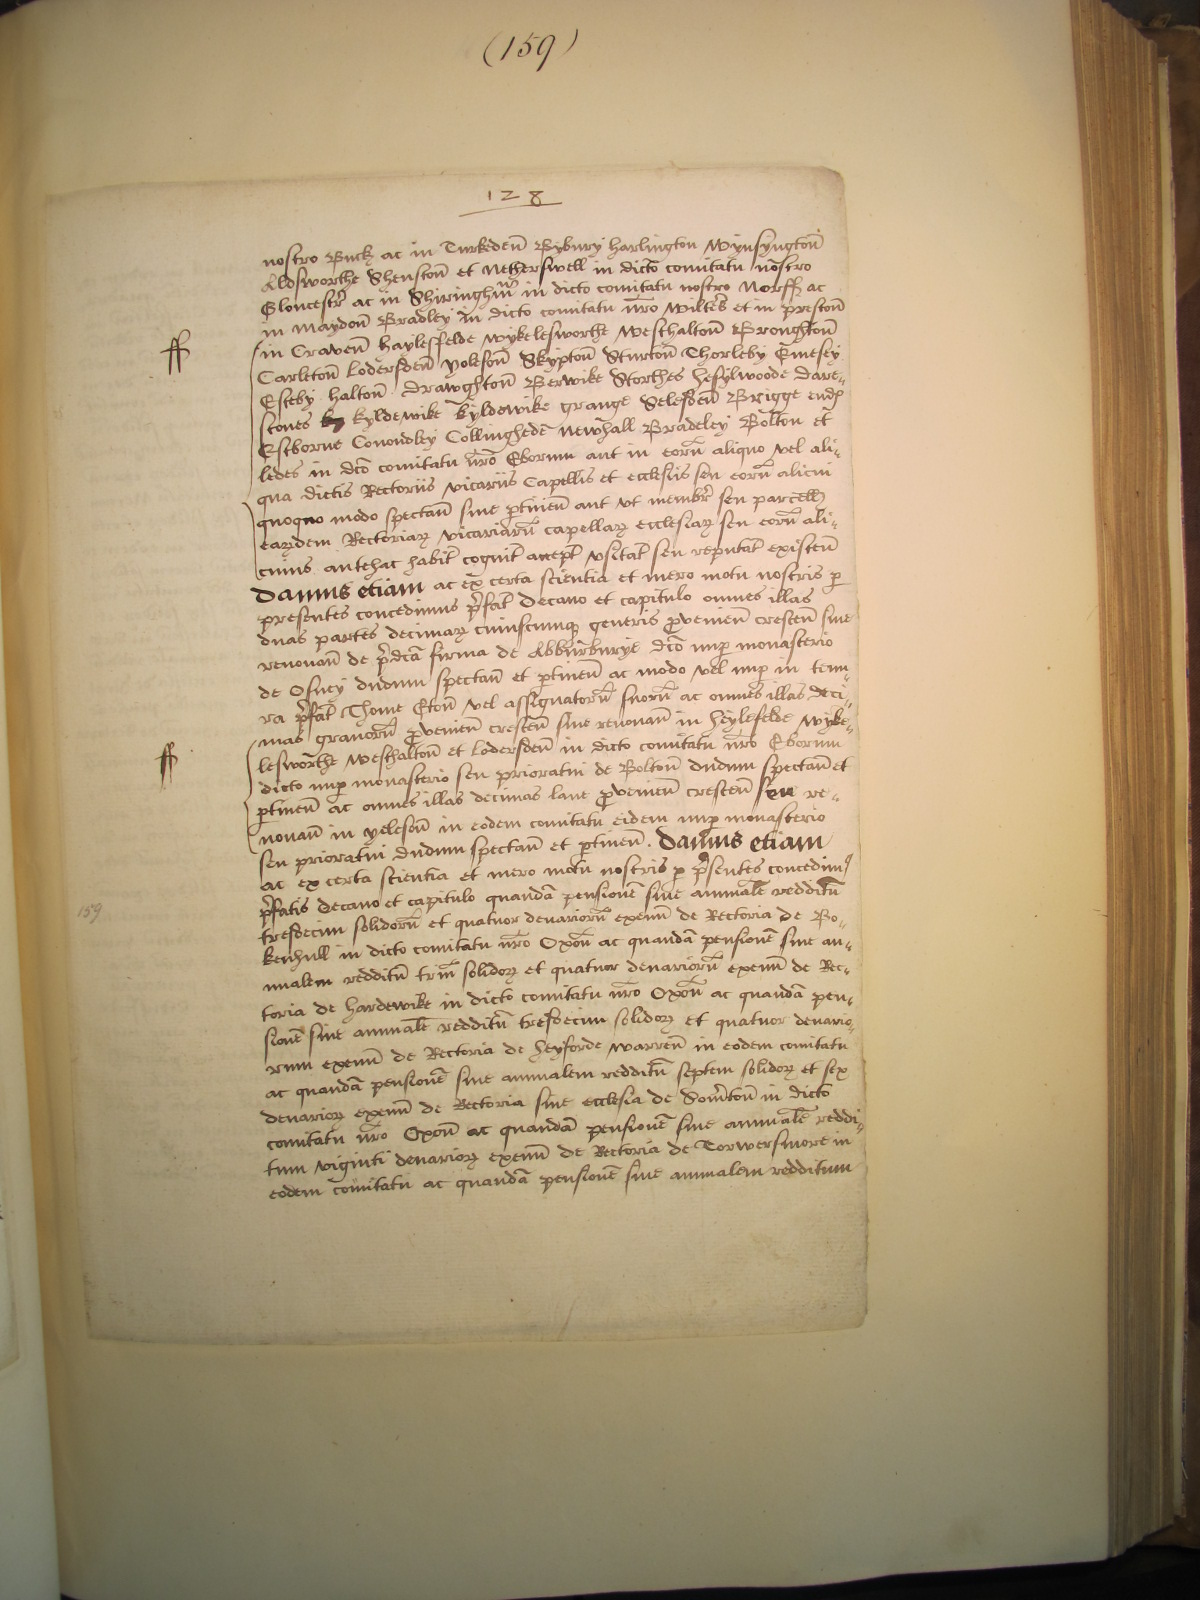 (159)
128
nostro Buck ac in Turkdeñ Bybury harlington Wynsyngtoñ
Aldsworthe Shenstoñ et Netherswell in dicto comitatu nostro
Gloucestr ac in Shiringhm in dicto comitatu nostro Norff ac
in Maydoñ Bradley in dicto comitatu nro Wiltes et in prestoñ
ff
in Craveñ haylesfelde Wykelesworthe Westhaltoñ Broughtoñ
Carletoñ Lodersdeñ yolesoñ Skyptoñ Sturtoñ Thorleby Emesey
Esteby halton Drawghtoñ Berwike Storthes hesylwoode Dare-
stones Kyldewike kyldewike grange Selesdeñ Brigge end
Estborne Conondley Collinghedē newhall Bradeley Bolton et
ledes in dco comitatu nro Eborum aut in eorū aliquo vel ali-
qua dictis Rectoriis vicariis Capellis et ecclesiis seu eorū alicui
quoquo modo spectañ sive ptineñ aut ut membr seu parcell
earzdem Rectoriarz vicariarū capellarz ecclesiarz seu eorū ali-
cuius antehac habit cognit accept usitat seu reputat existeñ
Damus etiam ac ex certa scientia et mero motu nostris p
presentes concedimus pfat Decano et capitulo omnes illas
duas partes decimarz cuiuscumqz generis proveнieñ cresceñ sive
renovañ de pdcā firma de Abburburye dco nup monasterio
de Osney dudum spectañ et ptineñ ac modo vel nup in tenu-
ra pfat Thome Etoñ vel assignatorū suorū ac omnes illas deci-
mas granorū provenieñ cresceñ sive renovañ in heylefelde Wyke-
ff
lesworthe Westhaltoñ et Lodersdeñ in dicto comitatu nro Eborum
dicto nup monasterio seu prioratui de Boltoñ dudum spectañ et
ptineñ ac omnes illas decimas lane provenieñ cresceñ seu re-
novañ in yelesoñ in eodem comitatu eidem nup monasterio
seu prioratui dudum spectañ et ptineñ. Damus etiam
ac ex certa scientia et mero motu nostris p psentes concedim9
pfatis decano et capitulo quandā pensionē sive annualē redditū
159
tresdecim solidorū et quatuor denariorū exeuñ de Rectoria de Bo-
kenhull in dicto comitatu nro Oxoñ ac quandā pensionē sive an-
nualem redditū triū solidorz et quatuor denariorū exeuñ de Rec-
toria de hardewike in dicto comitatu nro Oxoñ ac quandā pen-
sionē sive annualē redditū tresdecim solidorz et quatuor denario-
rum exeuñ de Rectoria de heyforde warreñ in eodem comitatu
ac quandā pensionē sive annualem redditū septem solidorz et sex
denariorz exeuñ de Rectoria sive ecclesia de Somtoñ in dicto
comitatu nro Oxoñ ac quandā pensionē sive annualē reddi-
tum viginti denariorz exeuñ de Rectoria de Torwersmore in
eodem comitatu ac quandā pensionē sive annualem redditum